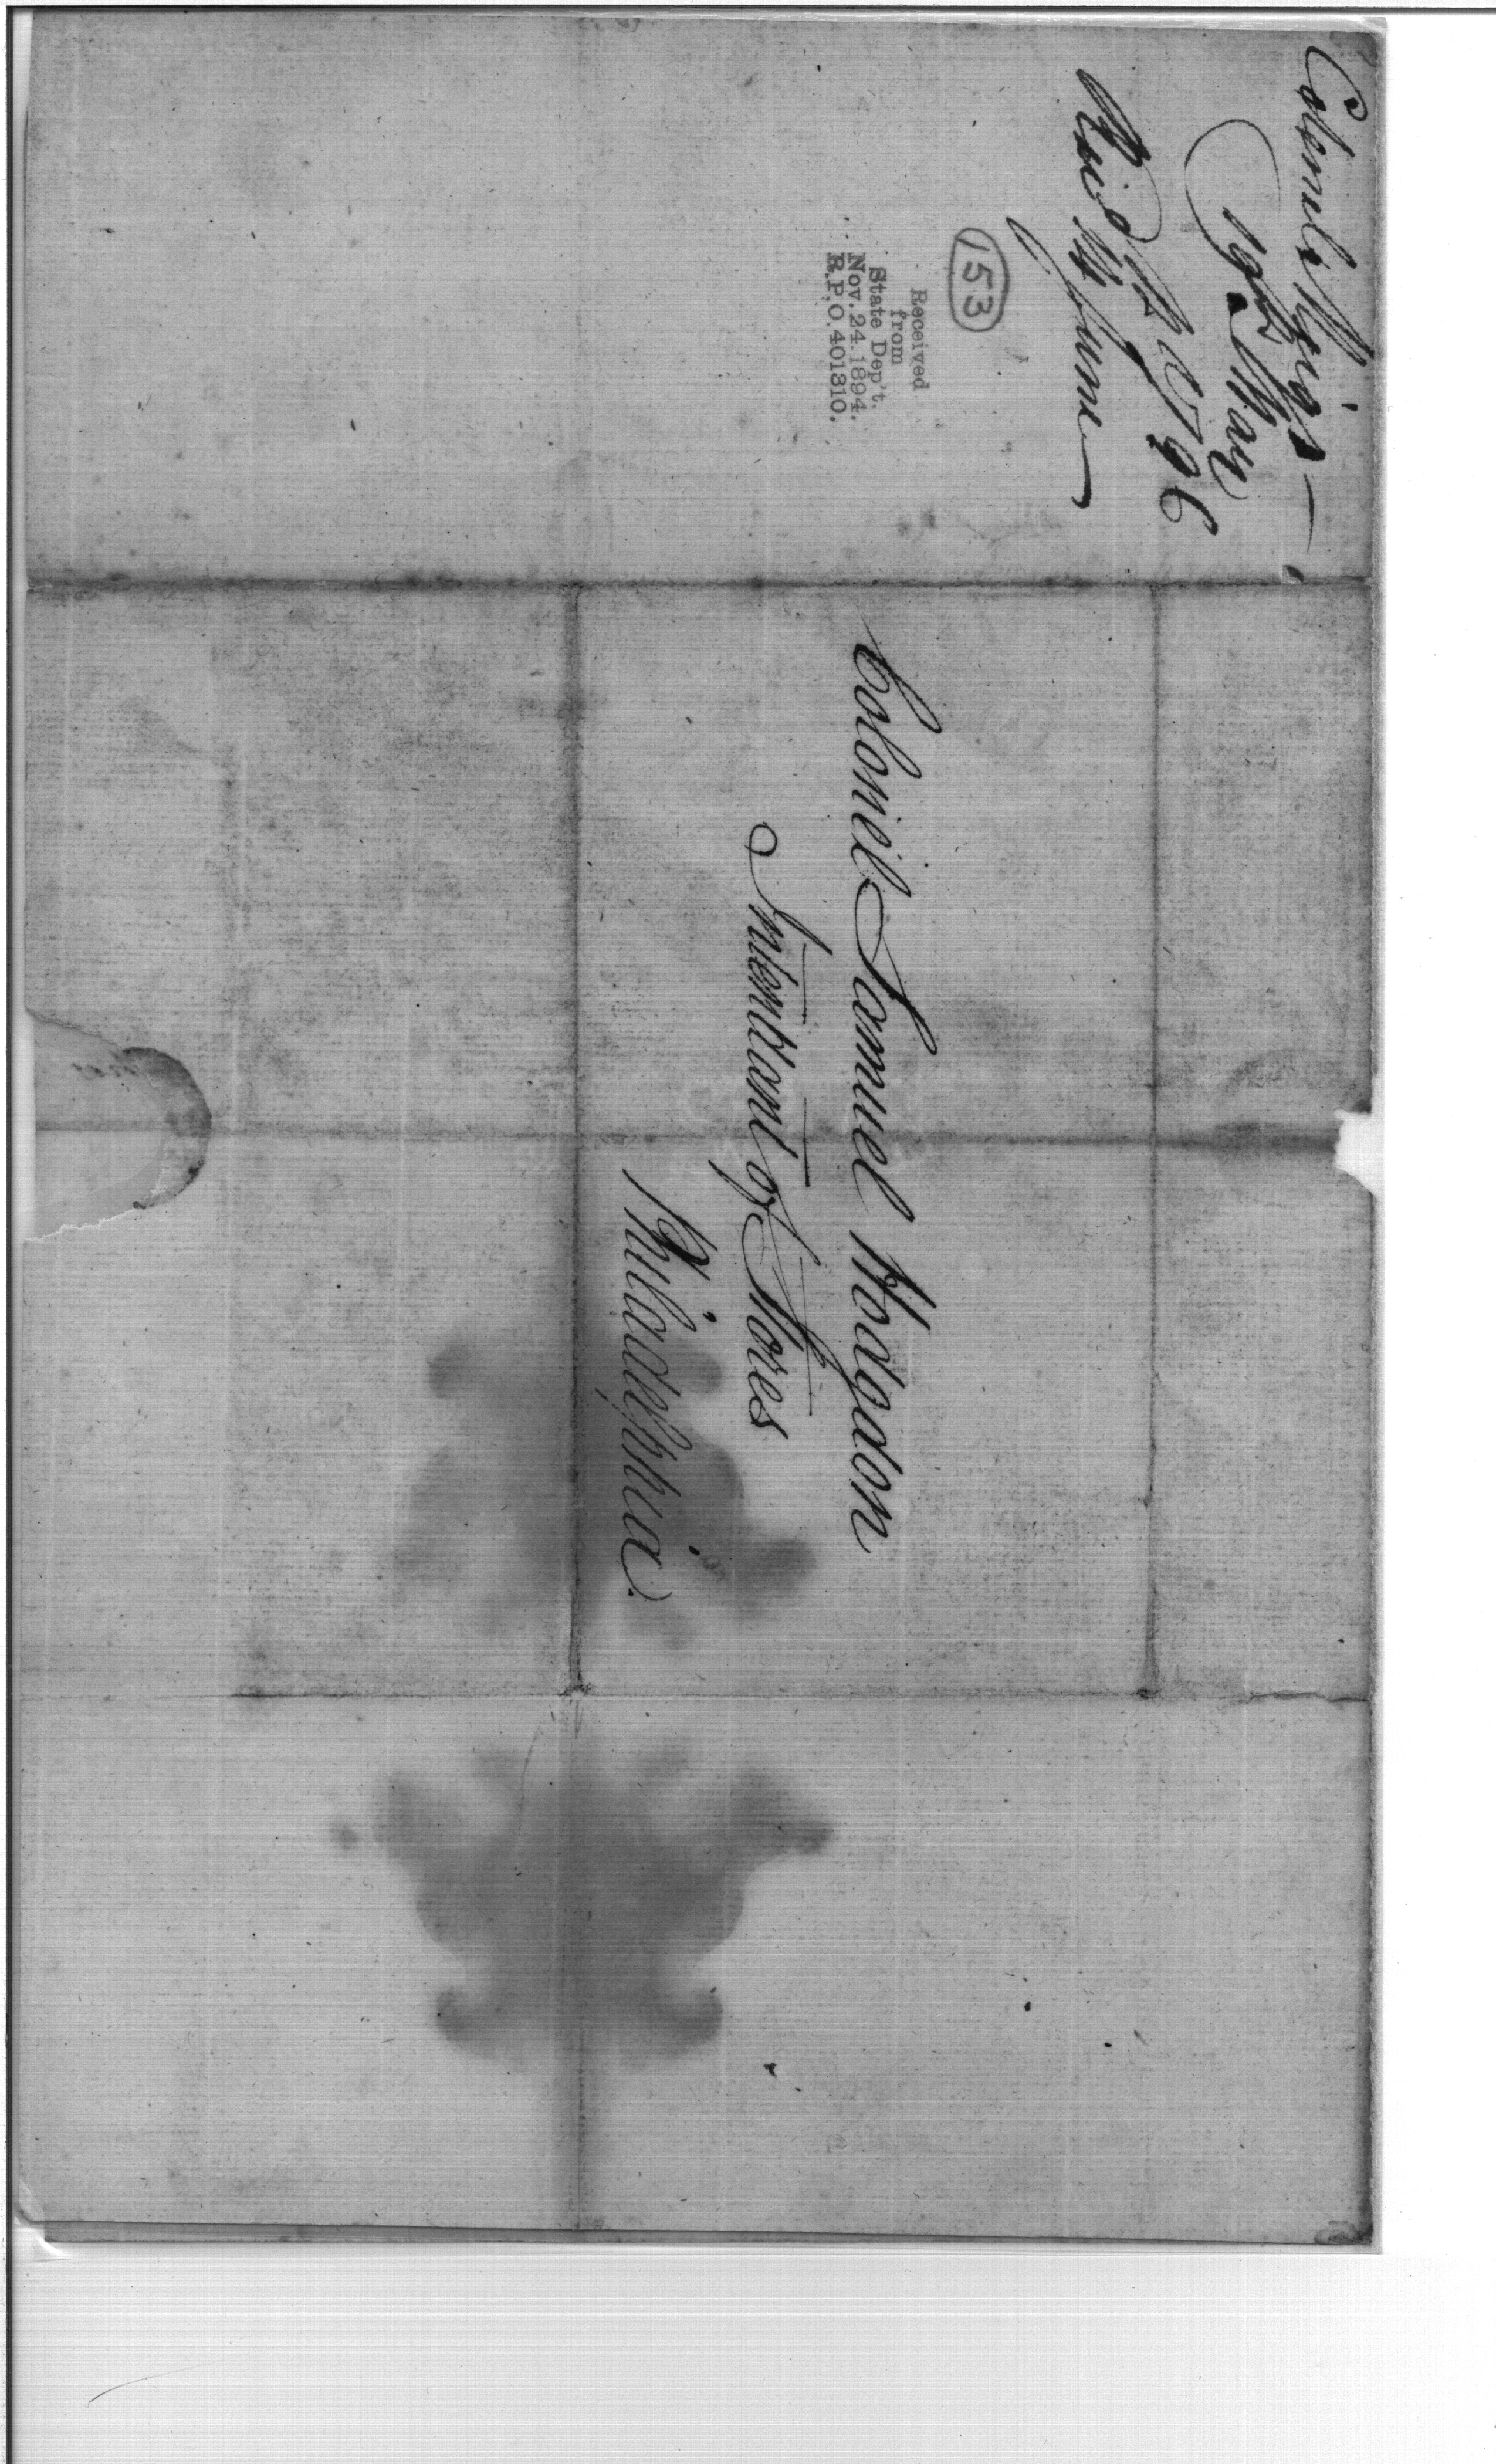 Colonel Meigs —
19th May
1796
Rec'd 14 June
153
Received
from
State Dep't.
Nov. 24. 1894.
R.P.O. 401310.
Colonel Samuel Hodgdon
Intendant of Stores
Philadelphia.